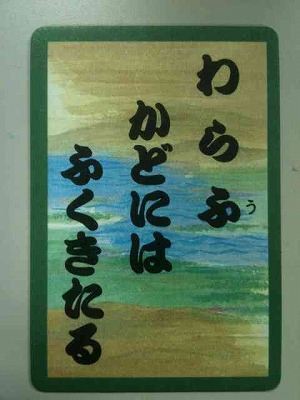 わらふ
う
かどには
ふくきたる